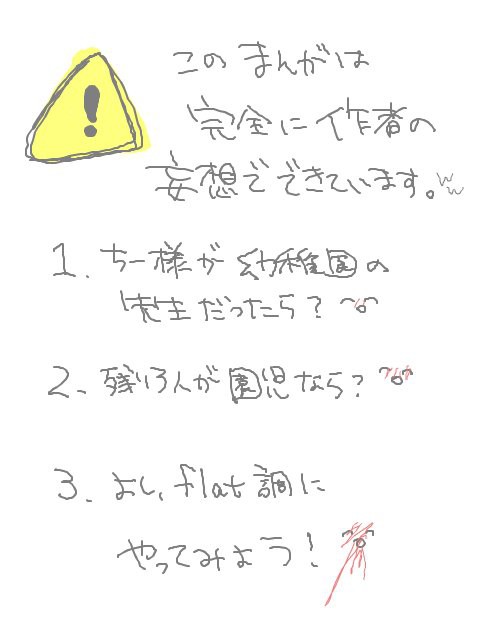 !
このまんがは
完全に作者の
妄想でできています。ww
1. ちー様が幼稚園の
先生だったら?
2、残り3人が園児なら?
3. よし、flat調に
やってみよう!